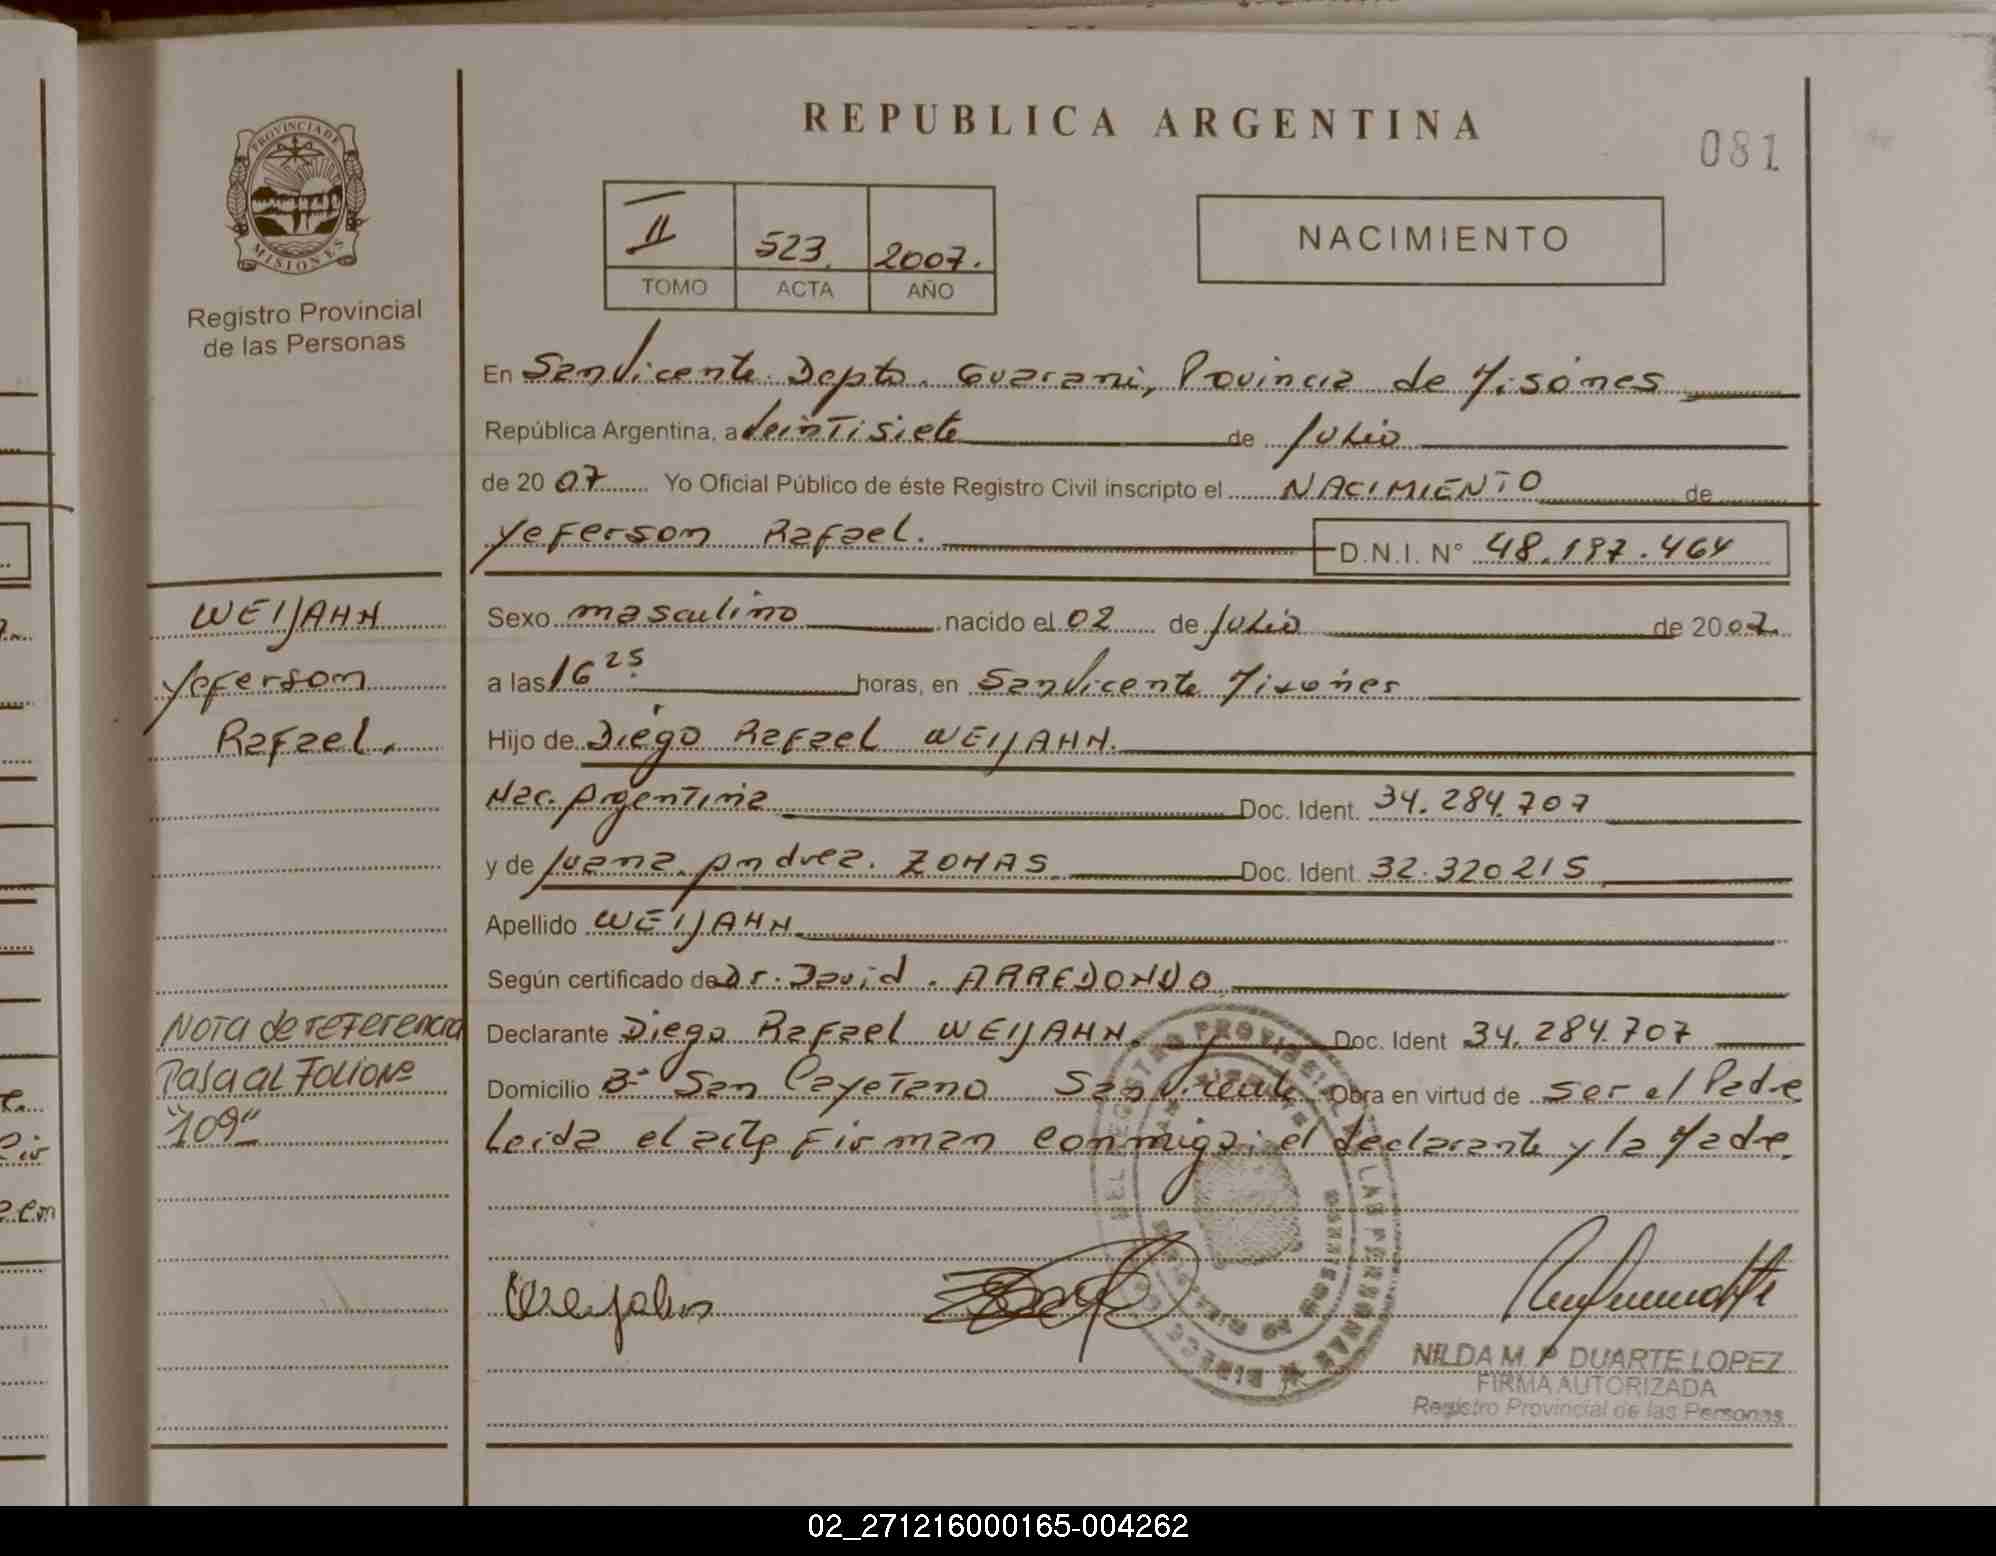 REPUBLICA ARGENTINA
081
PROVINCIA DE
MISIONES
Registro Provincial
de las Personas
II 523. 2007.
TOMO ACTA AÑO
NACIMIENTO
En San Vicente Depto. Guarani, Provincia de Misiones
República Argentina, a Veintisiete de Julio
de 20 07 Yo Oficial Público de éste Registro Civil inscripto el NACIMIENTO de
Yeferson Rafael. D.N.I. N° 48.197.464
WEIJAHN
Yeferson
Rafael.
Sexo masculino nacido el 02 de Julio de 20 07.
a las 16 25 horas, en San Vicente Misiones
Hijo de Diego Rafael WEIJAHN.
Nac. Argentina Doc. Ident. 34.284.707
y de Juana Andrea. ZOHAS Doc. Ident. 32.320 215
Apellido WEIJAHN
Según certificado de Dr. David. ARREDONDO
Declarante Diego Rafael WEIJAHN. Doc. Ident 34.284.707
Domicilio B° San Cayetano San Vicente Obra en virtud de ser el Padre
Leida el acta Firman conmigo: el declarante y la Madre.
Nota de referencia
Pasa al Folio Nº
"109"
NILDA M. P DUARTE LOPEZ
FIRMA AUTORIZADA
Registro Provincial de las Personas
02_271216000165-004262